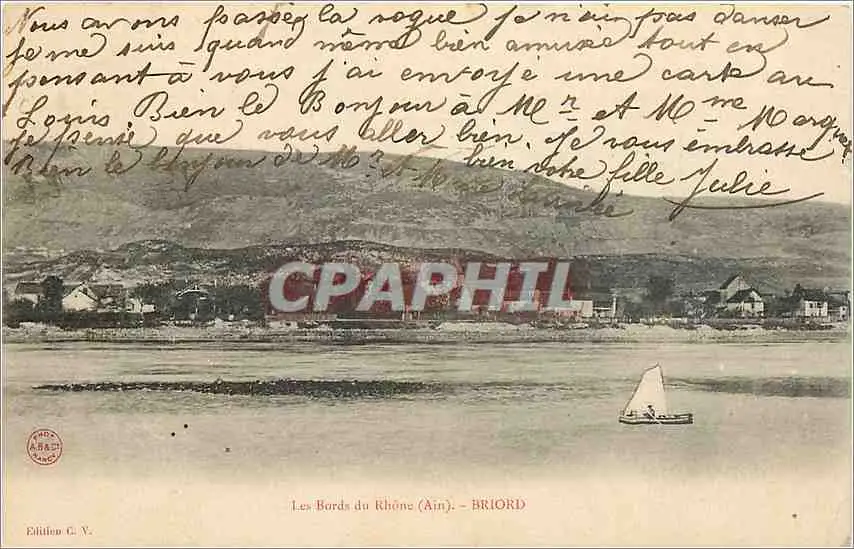 Nous avons passé la vogue Je n'ai pas danser
je me suis quand même bien amusée tout en
pensant à vous j'ai envoyé une carte au
Louis. Bien le Bonjour à Mr et Mme Marque
je pense que vous aller bien. Je vous embrasse
Bien le bonjour de Mr et Mme bien votre fille Julie
CPAPHTL
PHOT
A.B & Cie
NANCY
Les Bords du Rhône (Ain). - BRIORD
Edition C. V.